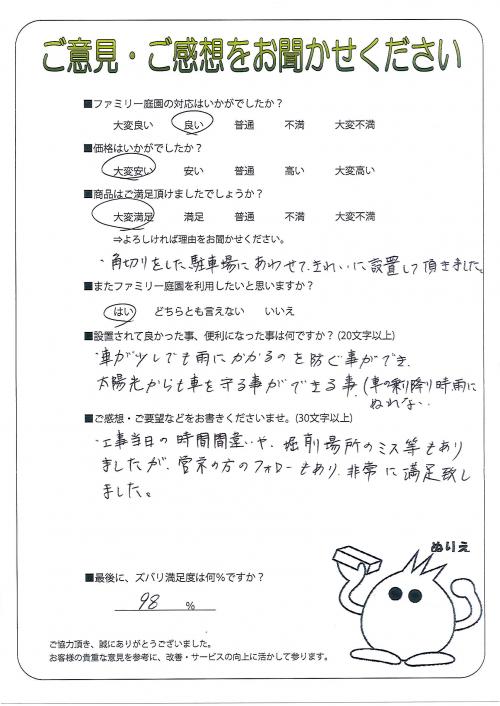 ご意見・ご感想をお聞かせください
■ファミリー庭園の対応はいかがでしたか？
大変良い 良い 普通 不満 大変不満
■価格はいかがでしたか？
大変安い 安い 普通 高い 大変高い
■商品はご満足頂けましたでしょうか？
大変満足 満足 普通 不満 大変不満
⇒よろしければ理由をお聞かせください。
・角切りをした駐車場にあわせて、きれいに設置して頂きました。
■またファミリー庭園を利用したいと思いますか？
はい どちらとも言えない いいえ
■設置されて良かった事、便利になった事は何ですか？(20文字以上)
・車が少しでも雨にかかるのを防ぐ事ができ、
太陽光からも車を守る事ができる事。(車の乗り降り時雨に
ぬれない
■ご感想・ご要望などをお書きくださいませ。(30文字以上)
・工事当日の時間間違いや、堀削場所のミス等もあり
ましたが、営業の方のフォローもあり、非常に満足致し
ました。
ぬりえ
■最後に、ズバリ満足度は何%ですか？
98 %
ご協力頂き、誠にありがとうございました。
お客様の貴重な意見を参考に、改善・サービスの向上に活かして参ります。